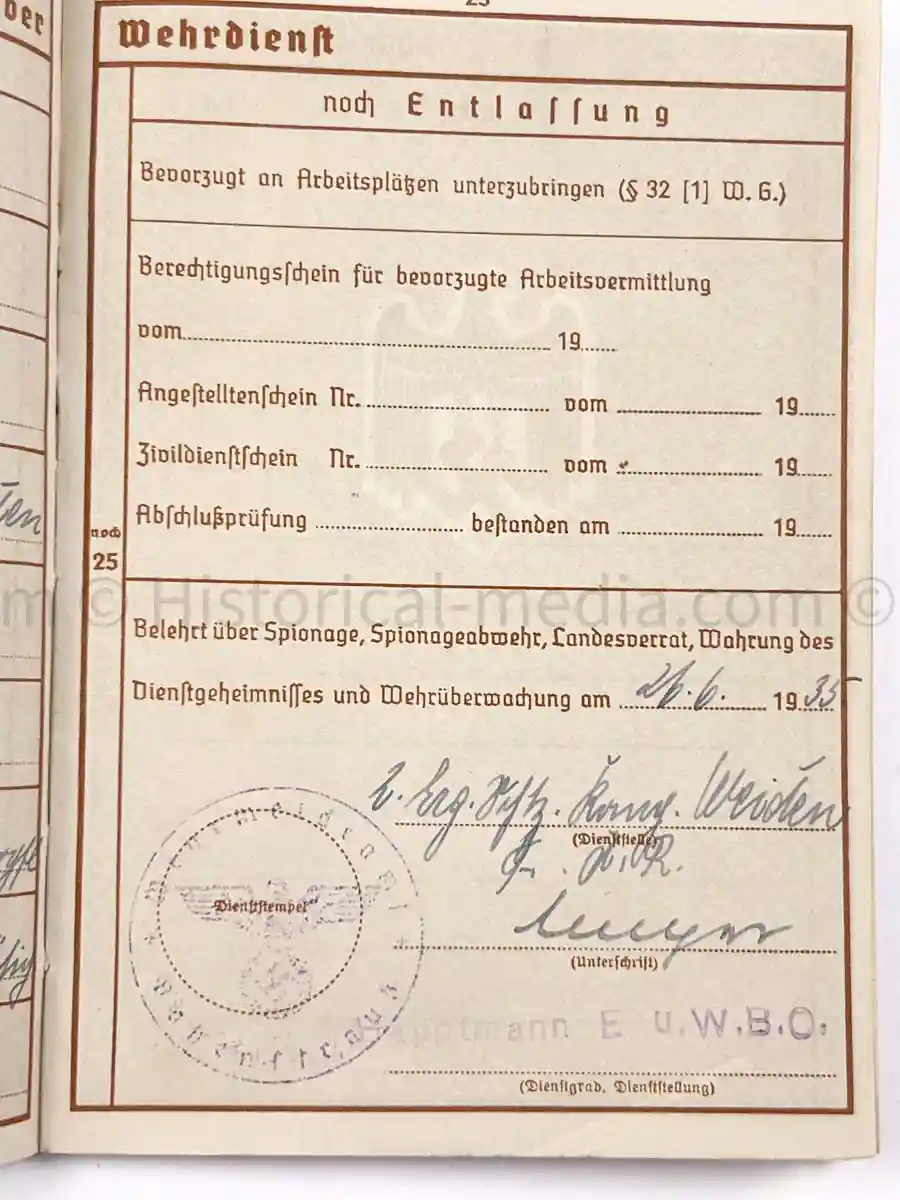 ber
Wehrdienst
noch Entlassung
Bevorzugt an Arbeitsplätzen unterzubringen (§ 32 [1] W. G.)
Berechtigungsschein für bevorzugte Arbeitsvermittlung
vom 19
Angestelltenschein Nr. vom 19
Zivildienstschein Nr. vom 19
Abschlußprüfung bestanden am 19
noch
25
© Historical-media.com ©
Belehrt über Spionage, Spionageabwehr, Landesverrat, Wahrung des
Dienstgeheimnisses und Wehrüberwachung am 26.6. 1935
Erg. Komp. Weiden
(Dienststelle)
Wehrmeldeamt
Dienststempel
(Unterschrift)
Hauptmann E u.W.B.O.
(Dienstgrad, Dienststellung)